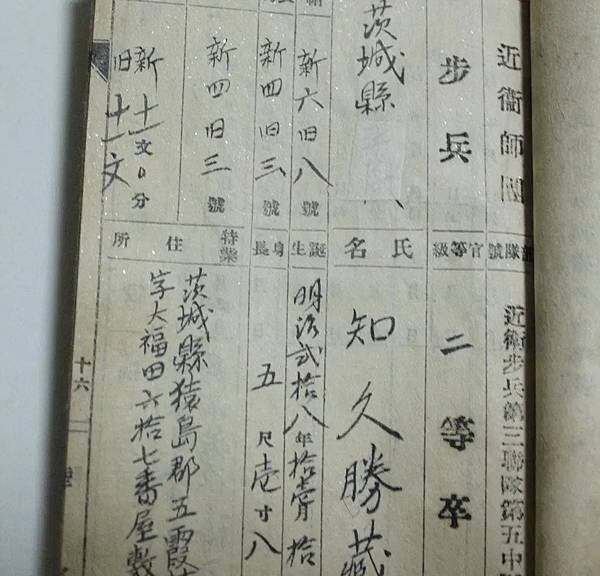 近衞師團
步兵
茨城縣
新六旧八號
新四旧三號
新四旧三號
新十一文0分
旧十一文
隊號
官等級
氏名
誕生
身長
特業
住所
近衞步兵第三聯隊第五中
二等卒
知久勝藏
明治貳拾八年拾壹月拾
五尺壱寸八
茨城縣猿島郡五霞
字大福田六拾七番屋敷
十六